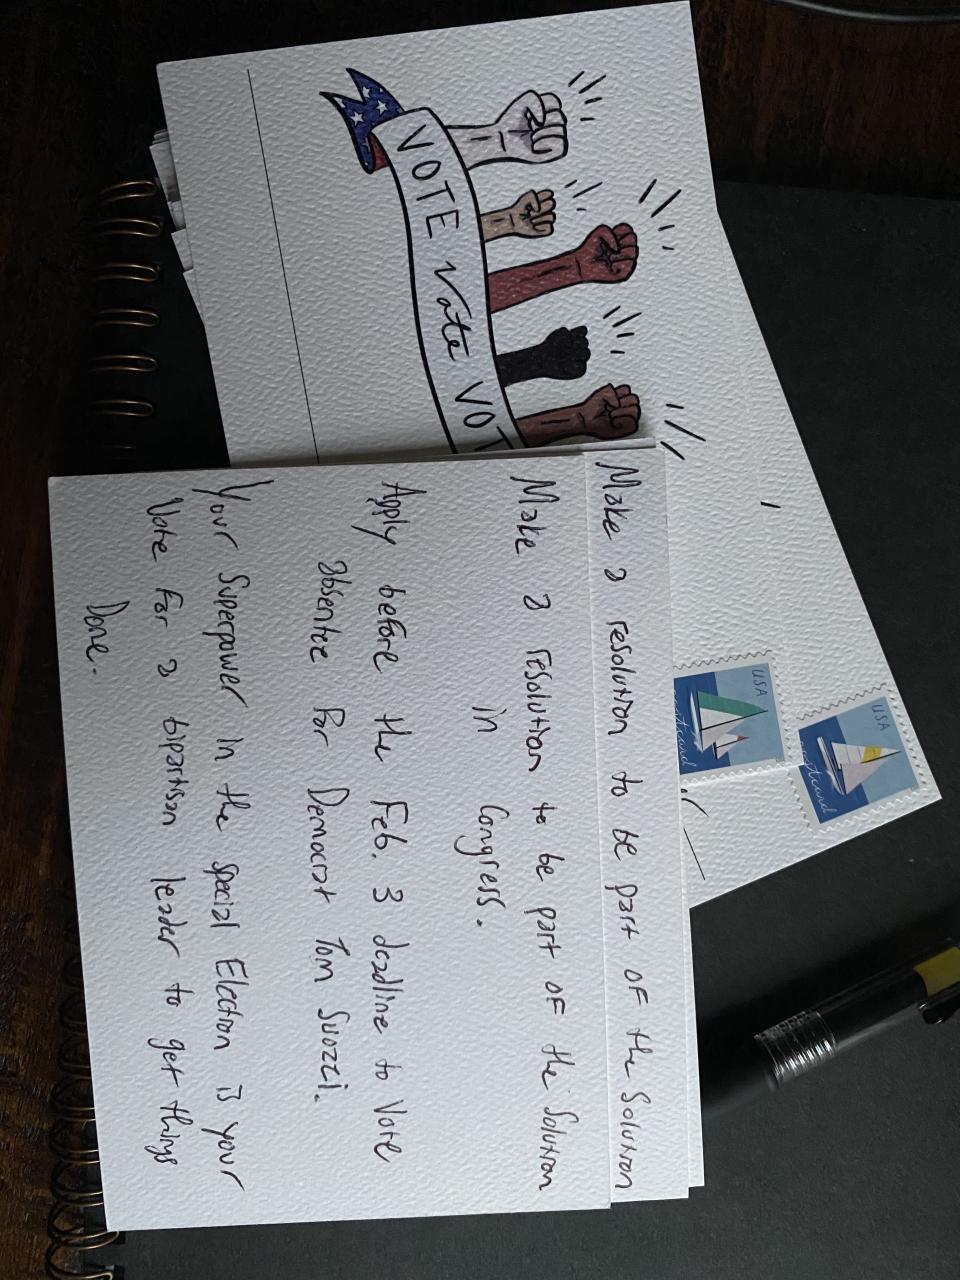 VOTE Vote VOT
USA
USA
Make a resolution to be part of the Solution
Make a resolution to be part of the Solution
in Congress.
Apply before the Feb. 3 deadline to Vote
absentee for Democrat Tom Suozzi.
Your Superpower in the special Election is your
Vote for a bipartison leader to get things
Done.